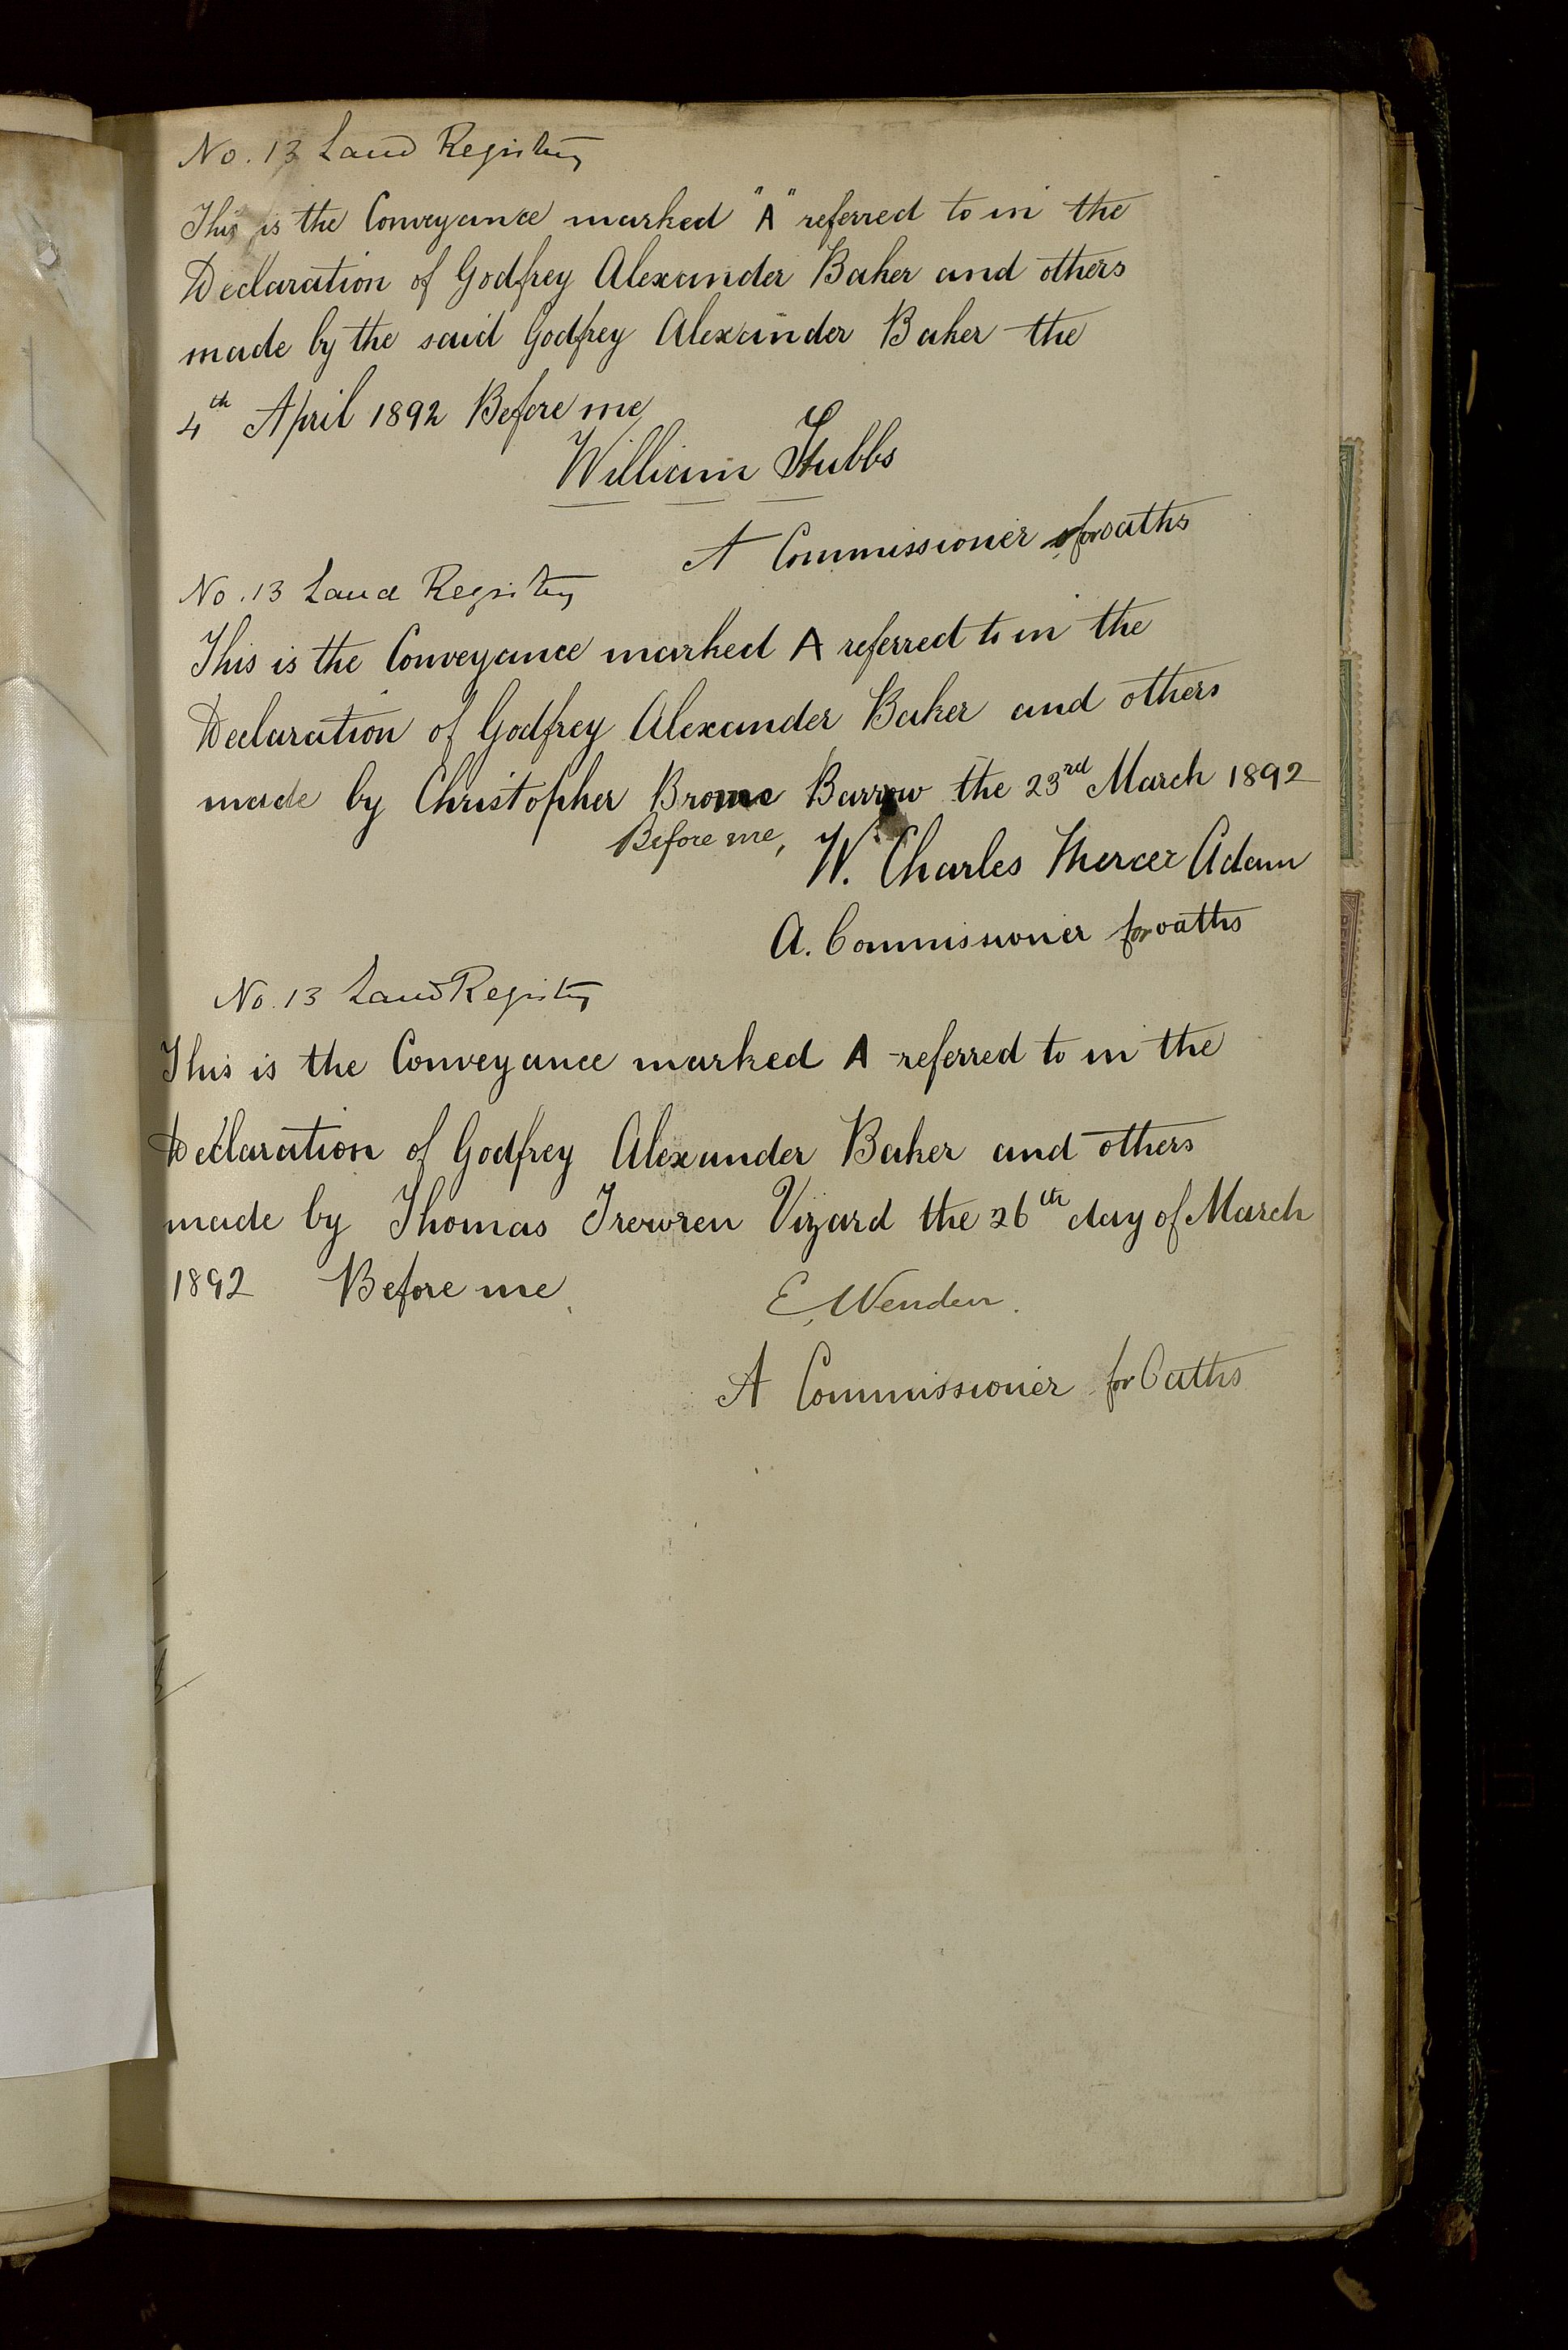 No. 13 Land Registry
This is the Conveyance marked "A" referred to in the
Declaration of Godfrey Alexander Baker and others
made by the said Godfrey Alexander Baker the
4th April 1892 Before me
William Stubbs
A Commissioner for oaths
No. 13 Land Registry
This is the Conveyance marked A referred to in the
Declaration of Godfrey Alexander Baker and others
made by Christopher Brome Barrow the 23rd March 1892
Before me, W. Charles Mercer Adam
A. Commissioner for oaths
No. 13 Land Registry
This is the Conveyance marked A referred to in the
Declaration of Godfrey Alexander Baker and others
made by Thomas Trewren Vizard the 26th day of March
1892 Before me E. Wenden.
A Commissioner for Oaths